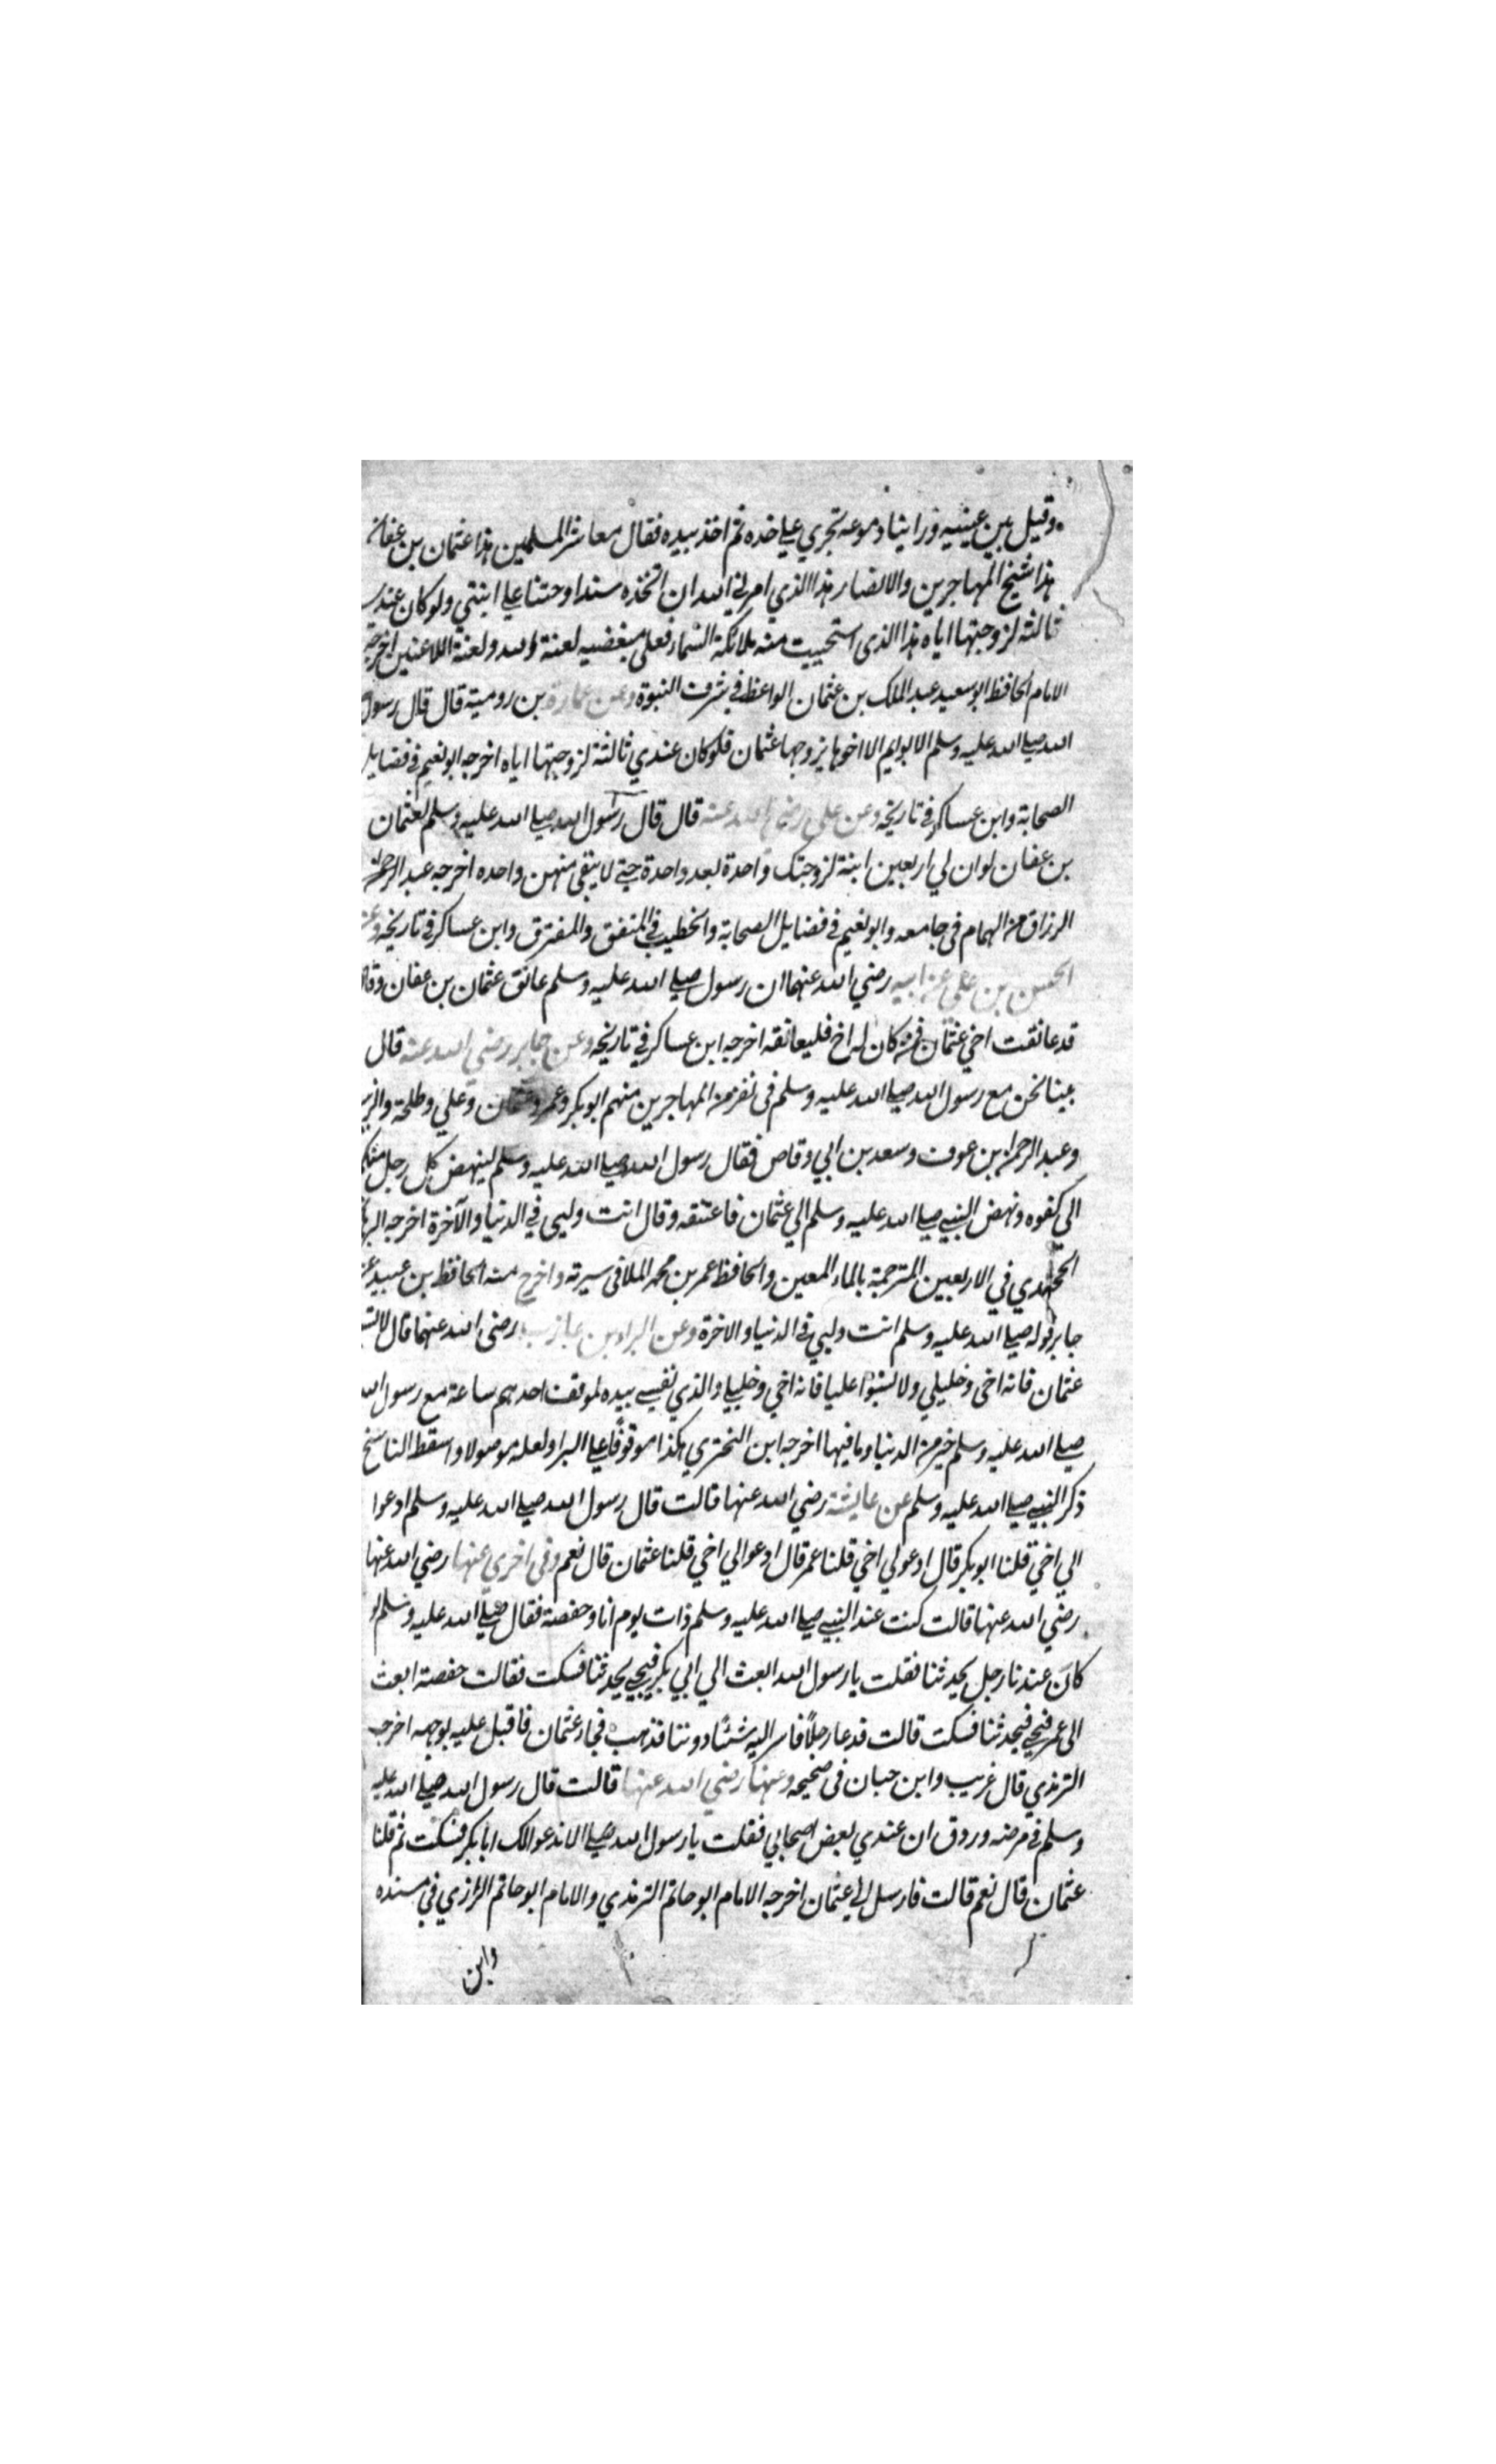 وقبل بين عينيه ورأينا دموعه تجري علي خده ثم اخذ بيده فقال معاشر المسلمين هذا عثمان بن عفان
هذا شيخ المهاجرين والانصار هذا الذي امرني الله ان اتخذه سندا وختنا علي ابنتي ولو كان عندي
ثالثة لزوجتها اياه هذا الذى استحييت منه ملائكة السماء فعلى مبغضيه لعنة الله ولعنة اللاعنين اخرجه
الامام الحافظ ابو سعيد عبد الملك بن عثمان الواعظ في شرف النبوة وعن عمارة بن رومية قال قال رسول
الله صلي الله عليه وسلم الا ابو ايم الا اخوها يزوجها عثمان فلو كان عندي ثالثة لزوجتها اياه اخرجه ابو نعيم في فضايل
الصحابة وابن عساكر في تاريخه وعن على رضي الله عنه قال قال رسول الله صلي الله عليه وسلم لعثمان
بن عفان لو ان لي اربعين ابنة لزوجتك واحدة بعد واحدة حتي لا يبقى منهن واحده اخرجه عبد الرحمن
الرزاق من الهمام فى جامعه وابو نعيم في فضايل الصحابة والخطيب في المتفق والمفترق وابن عساكر في تاريخه وعن
الحسن بن على عن ابيه رضي الله عنهما ان رسول صلي الله عليه وسلم عانق عثمان بن عفان وقال
قد عانقت اخي عثمان فمن كان له اخ فليعانقه اخرجه ابن عساكر في تاريخه وعن جابر رضي الله عنه قال
بينا نحن مع رسول الله صلي الله عليه وسلم فى نفر من المهاجرين منهم ابو بكر وعمر وعثمان وعلي وطلحة والزبير
وعبد الرحمن بن عوف وسعد بن ابي وقاص فقال رسول الله صلي الله عليه وسلم لينهض كل رجل منكم
الي كفوه ونهض النبي صلي الله عليه وسلم الي عثمان فاعتنقه وقال انت وليى في الدنيا والآخرة اخرجه
في الاربعين المترجمة بالماء المعين والحافظ عمر بن محمد الملا فى سيرته واخرج منه الحافظ بن عبيد عن
جابر قوله صلي الله عليه وسلم انت وليي في الدنيا والاخرة وعن البراء بن عازب رضى الله عنهما قال لا تسبوا
عثمان فانه اخى وخليلي ولا تسبوا عليا فانه اخي وخليلي والذي نفسي بيده لموقف احدهم ساعة مع رسول الله
صلي الله عليه وسلم خير من الدنيا وما فيها اخرجه ابن البختري هكذا موقوفا علي البرا ولعله موصولا واسقط الناسخ
ذكر النبي صلي الله عليه وسلم عن عايشة رضي الله عنها قالت قال رسول الله صلي الله عليه وسلم ادعوا
الي اخي قلنا ابو بكر قال ادعو لي اخي قلنا عمر قال ادعوا لي اخي قلنا عثمان قال نعم وفى اخري عنها رضي الله عنها
رضي الله عنها قالت كنت عند النبي صلي الله عليه وسلم ذات يوم انا وحفصة فقال صلي الله عليه وسلم لو
كان عندنا رجل يحدثنا فقلت يا رسول الله ابعث الي ابي بكر فيجي يحدثنا فسكت فقالت حفصة ابعث
الى عمر فيجي فيحدثنا فسكت قالت فدعا رجلاً فاسر اليه شئاً دوننا فذهب فجاء عثمان فاقبل عليه بوجهه اخرجه
الترمذي قال غريب وابن حبان فى صحيحه وعنها رضي الله عنها قالت قال رسول الله صلي الله عليه
وسلم في مرضه وردق ان عندي بعض اصحابي فقلت يا رسول الله صلي الا ندعو الك ابا بكر فسكت ثم قلنا
عثمان قال نعم قالت فارسل الي عثمان اخرجه الامام ابو حاتم الترمذي والامام ابو حاتم الرازي في مسنده
وابن